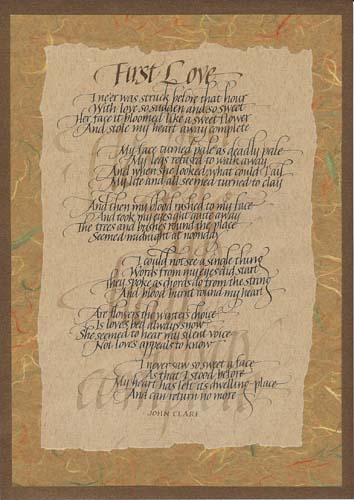 First Love
I ne'er was struck before that hour
With love so sudden and so sweet
Her face it bloomed like a sweet flower
And stole my heart away complete
My face turned pale as deadly pale
My legs refused to walk away
And when she looked, what could I ail
My life and all seemed turned to clay
And then my blood rushed to my face
And took my eyesight quite away
The trees and bushes round the place
Seemed midnight at noonday
I could not see a single thing
Words from my eyes did start
They spoke as chords do from the string
And blood burnt round my heart
Are flowers the winter's choice
Is love's bed always snow
She seemed to hear my silent voice
Not love's appeals to know
I never saw so sweet a face
As that I stood before
My heart has left its dwelling-place
And can return no more
JOHN CLARE